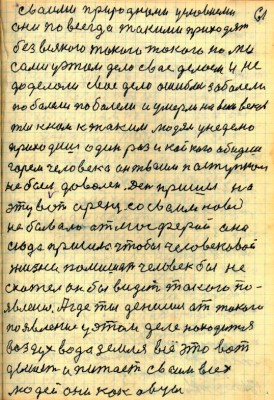 своими природными условиями 61
они повсегда такими приходят
без всякого такого такого но мы
сами этом дело свое делаем и не
доделом свое дело ошибки заболели
поболели поболели и умерли на веки веков
ты к ним к таким людям
приходил один раз и кой кого обидел
горем человека он твоим поступком
не был доволен Дети пришли на
эту вот арену со своим новой
не бывало атмосферой она
сюда пришла чтобы человековой
жизни помешать человек бы не
скажет он бы видит такого по-
явлено. А где ты денешся от такого
появление у этом деле находится
воздух вода земля всё это вот
движет и питает своим всех
людей они как овцы